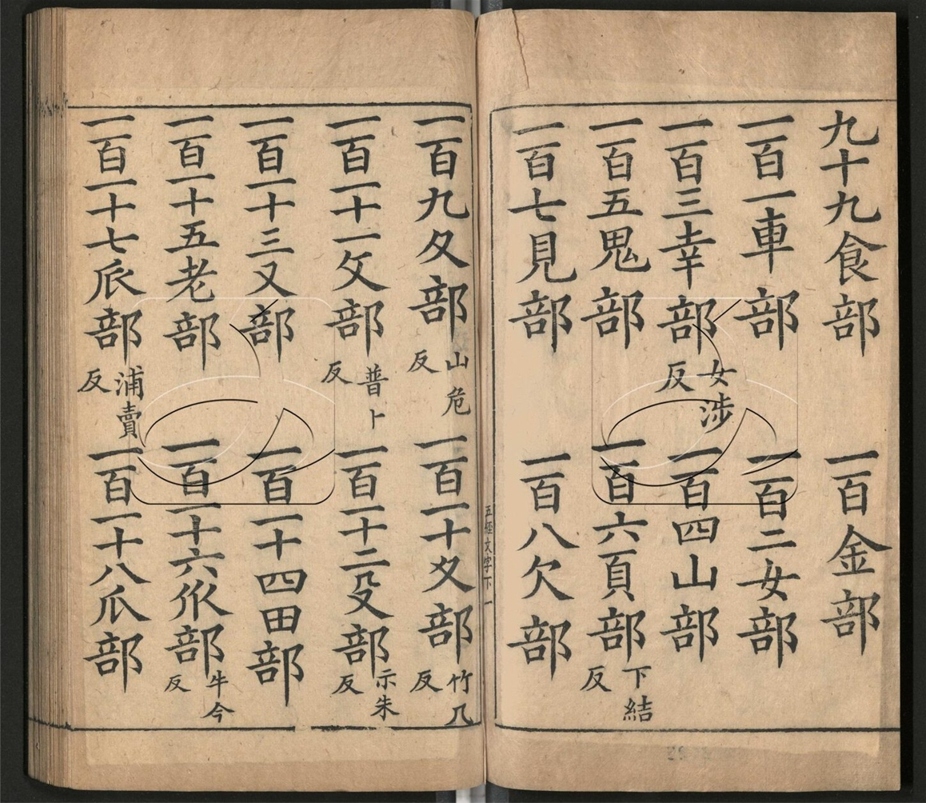 九十九食部 一百金部
一百一車部 一百二女部
一百三㚔部女涉反 一百四山部
一百五鬼部 一百六頁部下結反
一百七見部 一百八欠部
五經文字下 一
一百九夊部山危反 一百一十夂部竹几反
一百一十一攵部普卜反 一百一十二殳部示朱反
一百一十三又部 一百一十四田部
一百一十五老部 一百一十六㐺部牛今反
一百一十七𠂢部浦賣反 一百一十八瓜部